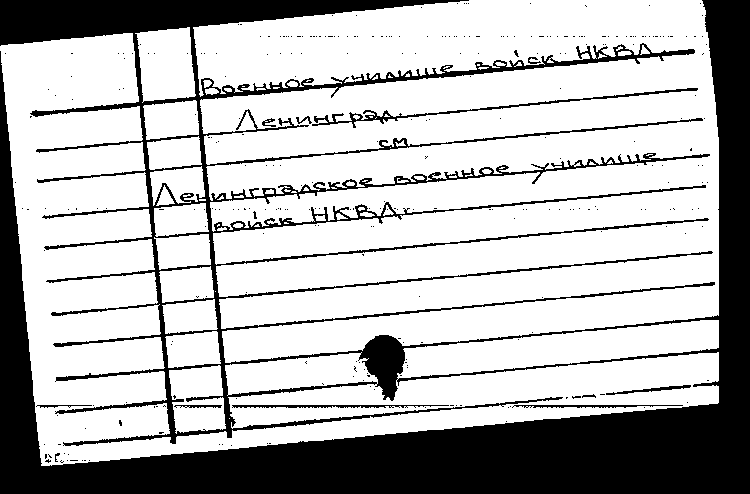 Военное училище войск НКВД.
Ленинград.
см.
Ленинградское военное училище
войск НКВД.